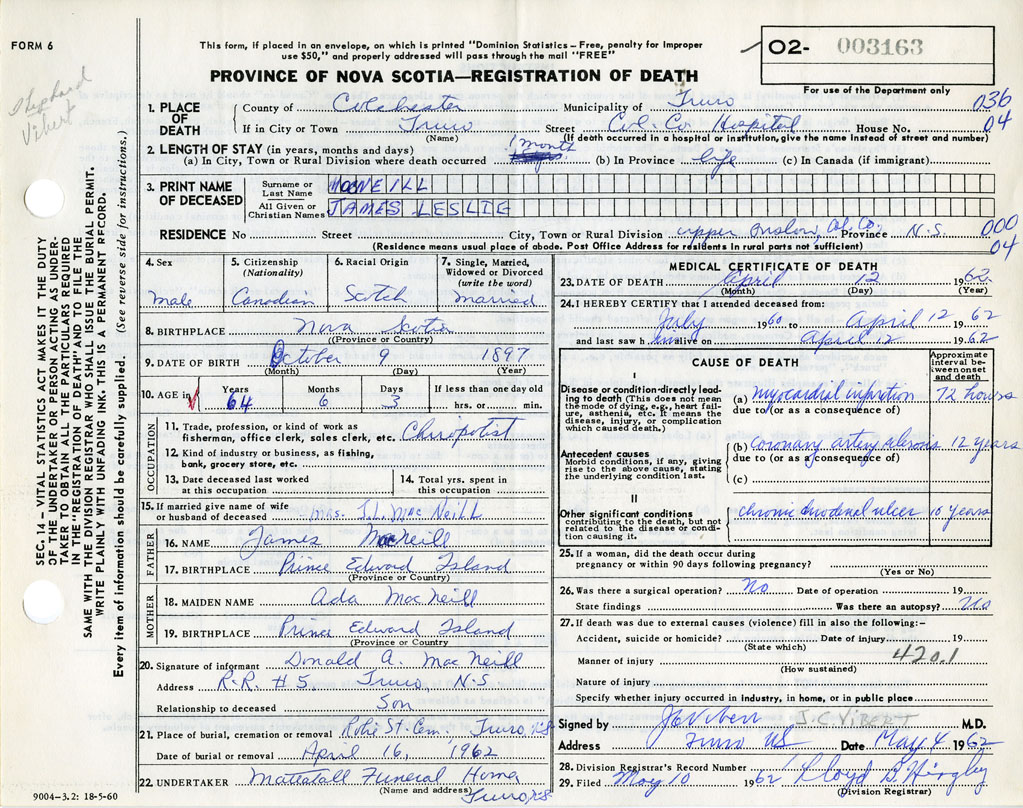 FORM 6
This form, if placed in an envelope, on which is printed "Dominion Statistics – Free, penalty for improper
use $50," and properly addressed will pass through the mail "FREE"
O2- 003163
For use of the Department only
PROVINCE OF NOVA SCOTIA—REGISTRATION OF DEATH
Shephard
Vibert
SEC. 14 – VITAL STATISTICS ACT MAKES IT THE DUTY
OF THE UNDERTAKER OR PERSON ACTING AS UNDER-
TAKER TO OBTAIN ALL THE PARTICULARS REQUIRED
IN THE "REGISTRATION OF DEATH" AND TO FILE THE
SAME WITH THE DIVISION REGISTRAR WHO SHALL ISSUE THE BURIAL PERMIT.
WRITE PLAINLY WITH UNFADING INK. THIS IS A PERMANENT RECORD.
Every item of information should be carefully supplied. (See reverse side for instructions.)
1. PLACE OF DEATH
County of Colchester Municipality of Truro 036
If in City or Town Truro Street Col. Co. Hospital House No. 04
(Name) (If death occured in a hospital or institution, give the name instead of street and number)
2. LENGTH OF STAY (in years, months and days) 1 month
(a) In City, Town or Rural Division where death occurred (b) In Province life (c) In Canada (if immigrant)
3. PRINT NAME OF DECEASED
Surname or Last Name MacNEILL
All Given or Christian Names JAMES LESLIE
RESIDENCE No Street City, Town or Rural Division Upper Onslow, Col. Co. Province N.S. 000
(Residence means usual place of abode. Post Office Address for residents in rural parts not sufficient) 04
4. Sex Male
5. Citizenship (Nationality) Canadian
6. Racial Origin Scotch
7. Single, Married, Widowed or Divorced (write the word) Married
8. BIRTHPLACE Nova Scotia
(Province or Country)
9. DATE OF BIRTH October 9 1897
(Month) (Day) (Year)
10. AGE in Years 64 Months 6 Days 3 If less than one day old hrs. or min.
OCCUPATION
11. Trade, profession, or kind of work as
fisherman, office clerk, sales clerk, etc. Chiropodist
12. Kind of industry or business, as fishing,
bank, grocery store, etc.
13. Date deceased last worked
at this occupation
14. Total yrs. spent in
this occupation
15. If married give name of wife
or husband of deceased Mrs. J.L. MacNeill
FATHER
16. NAME James MacNeill
17. BIRTHPLACE Prince Edward Island
(Province or Country)
MOTHER
18. MAIDEN NAME Ada MacNeill
19. BIRTHPLACE Prince Edward Island
(Province or Country
20. Signature of informant Donald A. MacNeill
Address R.R. #5, Truro, N.S
Relationship to deceased Son
21. Place of burial, cremation or removal Robie St. Cem. Truro N.S
Date of burial or removal April 16, 1962
22. UNDERTAKER Mattatall Funeral Home
(Name and address) Truro N.S
9004-3.2: 18-5-60
MEDICAL CERTIFICATE OF DEATH
23. DATE OF DEATH April 12 1962
(Month) (Day) (Year)
24. I HEREBY CERTIFY that I attended deceased from:
July 1960 to April 12 1962
and last saw him alive on April 12 1962
CAUSE OF DEATH
Approximate
interval be-
tween onset
and death
I
Disease condition directly lead-
ing to death (This does not mean
the mode of dying, e.g., heart fail-
ure, asthenia, etc. It means the
disease, injury, or complication
which caused death.)
(a) myocardial infarction 72 hours
due to (or as a consequence of)
Antecedent causes
Morbid conditions, if any, giving
rise to the above cause, stating
the underlying condition last.
(b) coronary artery sclerosis 12 years
due to (or as a consequence of)
(c)
II
Other significant conditions
contributing to the death, but not
related to the disease or condi-
tion causing it.
chronic duodenal ulcer 10 years
25. If a woman, did the death occur during
pregnancy or within 90 days following pregnancy?
(Yes or No)
26. Was there a surgical operation? No Date of operation 19
State findings Was there an autopsy? No
27. If death was due to external causes (violence) fill in also the following:–
Accident, suicide or homicide? Date of injury 19
(State which)
420.1
Manner of injury
(How sustained)
Nature of injury
Specify whether injury occurred in industry, in home, or in public place
Signed by J C Vibert J.C VIBERT M.D.
Address Truro NS Date May 4 1962
28. Division Registrar's Record Number
29. Filed May 10 1962 Lloyd B. Hingley
(Division Registrar)